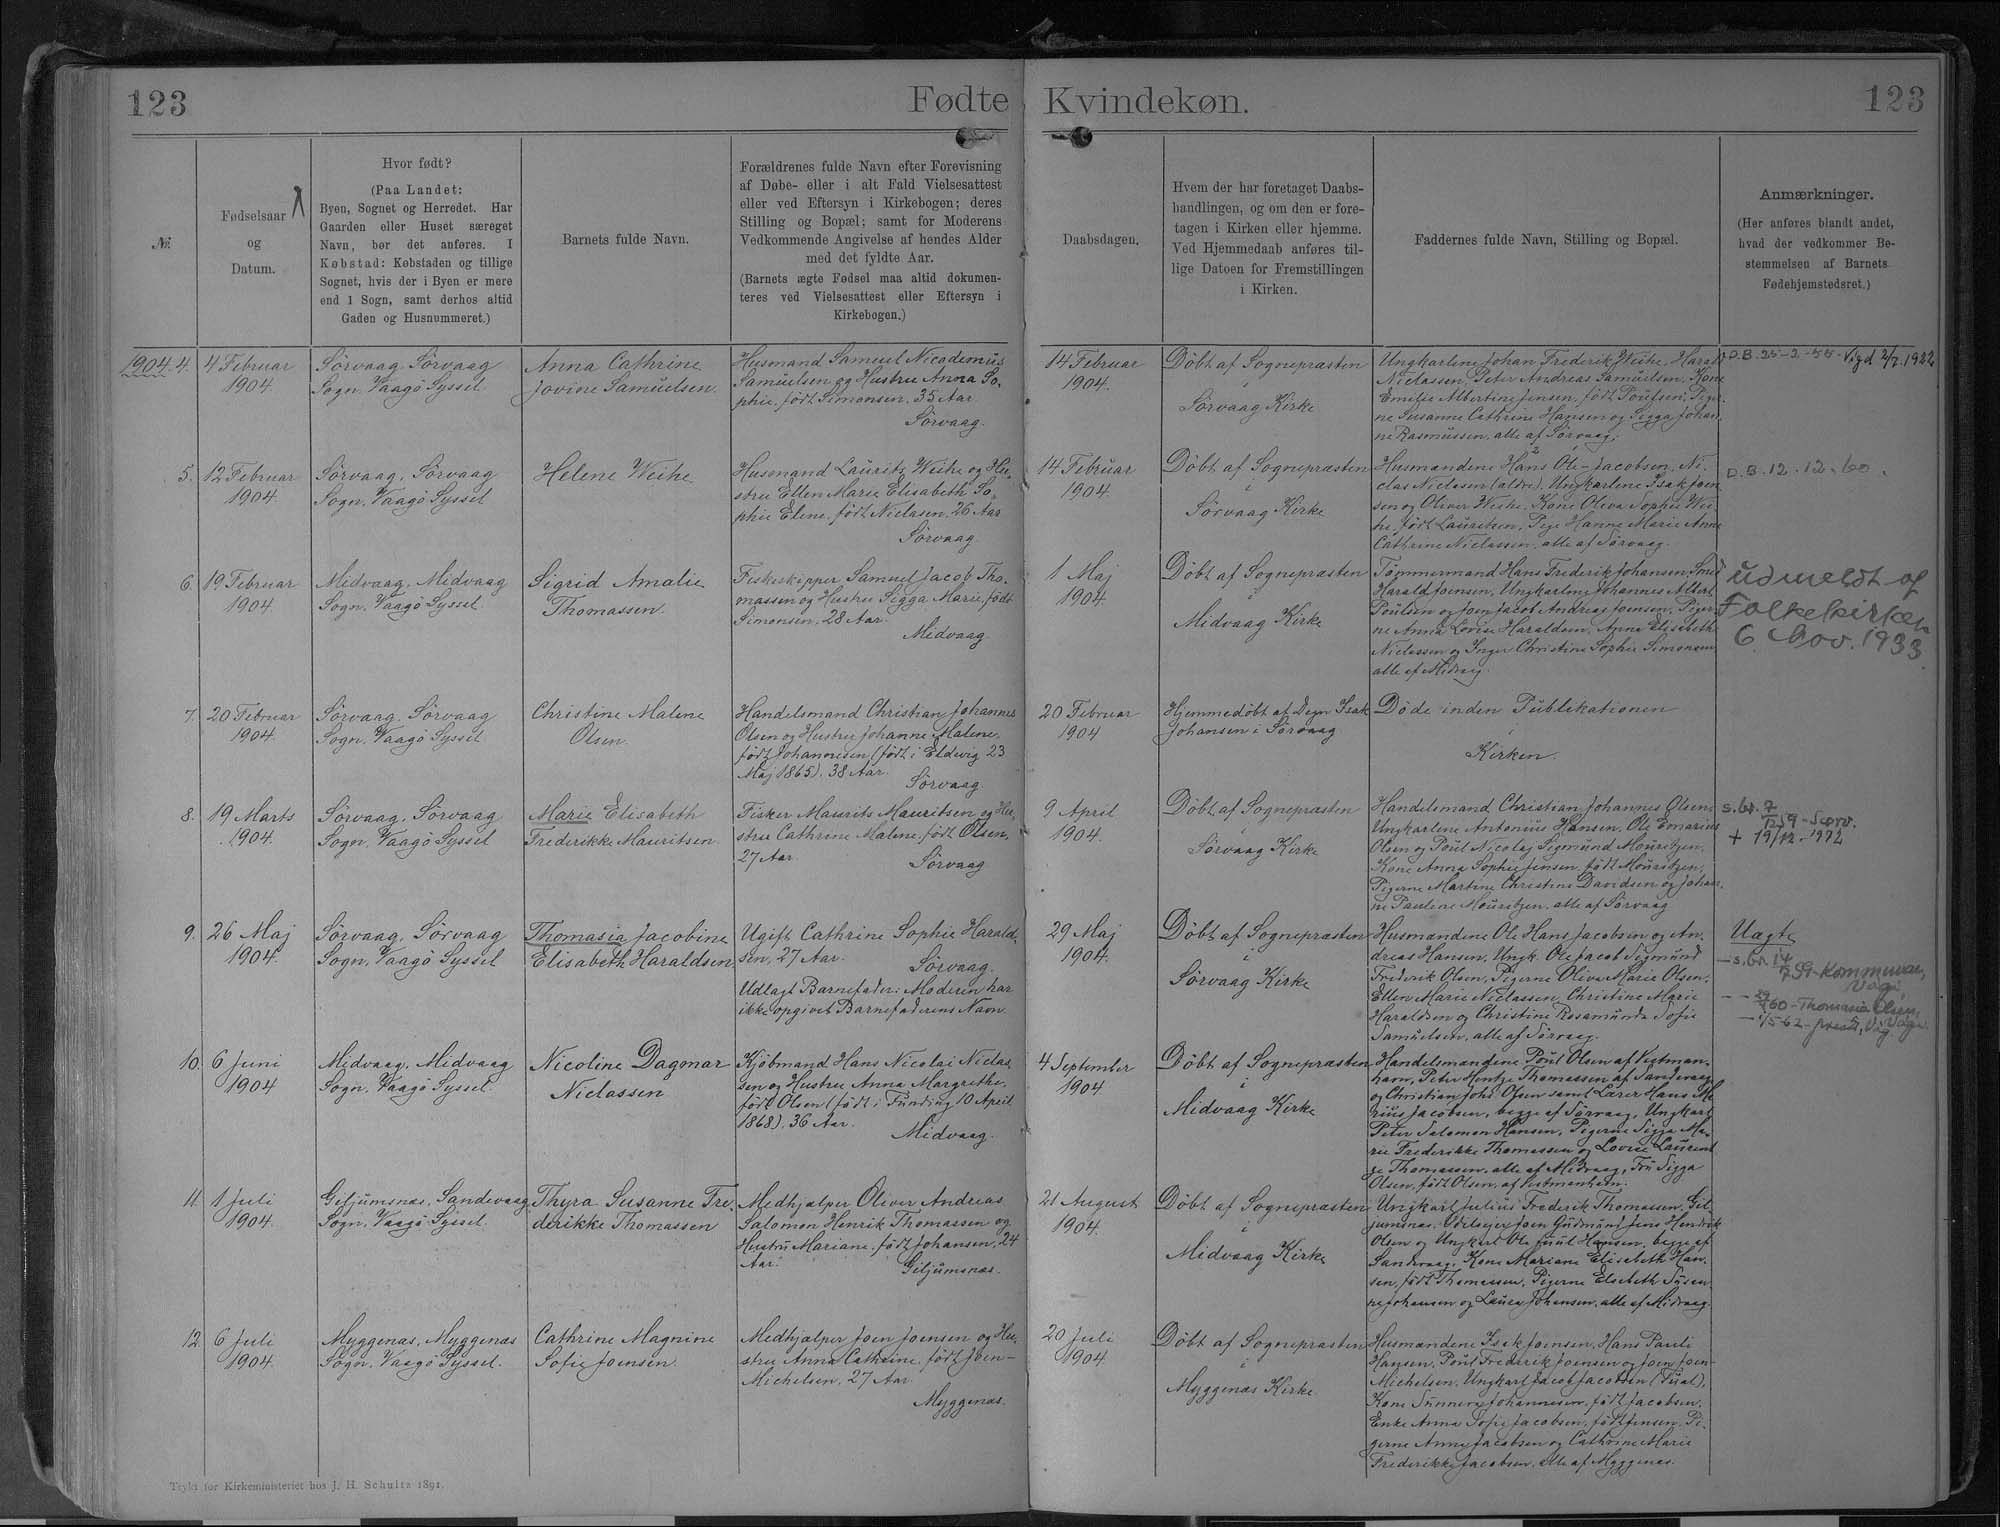 123
Fødte
Kvindekøn.
123
№.
Fødselsaar
og
Datum.
Hvor født?
(Paa Landet:
Byen, Sognet og Herredet. Har
Gaarden eller Huset særeget
Navn, bør det anføres. I
Købstad: Købstaden og tillige
Sognet, hvis der i Byen er mere
end 1 Sogn, samt derhos altid
Gaden og Husnummeret.)
Barnets fulde Navn.
Forældrenes fulde Navn efter Forevisning
af Døbe- eller i alt Fald Vielsesattest
eller ved Eftersyn i Kirkebogen; deres
Stilling og Bopæl; samt for Moderens
Vedkommende Angivelse af hendes Alder
med det fyldte Aar.
(Barnets ægte Fødsel maa altid dokumen-
teres ved Vielsesattest eller Eftersyn i
Kirkebogen.)
Daabsdagen.
Hvem der har foretaget Daabs-
handlingen, og om den er fore-
tagen i Kirken eller hjemme.
Ved Hjemmedaab anføres til-
lige Datoen for Fremstillingen
i Kirken.
Faddernes fulde Navn, Stilling og Bopæl.
Anmærkninger.
(Her anføres blandt andet,
hvad der vedkommer Be-
stemmelsen af Barnets
Fødehjemstedsret.)
1904. 4.
4 Februar
1904
Sörvaag, Sörvaag
Sogn, Vaagö Syssel
Anna Cathrine
Jovine Samuelsen
Husmand Samuel Nicodemus
Samuelsen og Hustru Anna So-
phie, født Simonsen, 35 Aar
Sörvaag.
14 Februar
1904.
Döbt af Sognepræsten
i
Sörvaag Kirke
Ungkarlene Johan Frederik Weihe, Harald
Niclassen, Peter Andreas Samuelsen, Kone
Emilie Albertine Jensen, født Poulsen, Piger-
ne Susanne Cathrine Hansen og Sigga Johan-
ne Rasmussen, alle af Sörvaag.
D.B. 25-2-55. Vigd 2/7.1922
5.
12 Februar
1904.
Sörvaag, Sörvaag
Sogn, Vaagö Syssel
Helene Weihe
Husmand Laurits Weihe og Hu-
stru Ellen Marie Elisabeth So-
phie Elene, født Niclasen, 26 Aar
Sörvaag.
14 Februar
1904.
Döbt af Sognepræsten
i
Sörvaag Kirke
Husmændene Hans Ole Jacobsen, Ni-
clas Niclasen (ældre), Ungkarlene Isak Joen-
sen og Oliver Weihe, Kone Oliva Sophie Wei-
he, født Lauritsen, Pige Hanne Marie Anne
Cathrine Niclassen, alle af Sörvaag.
D.B. 12.12.60.
6.
19 Februar
1904.
Midvaag, Midvaag
Sogn, Vaagö Syssel
Sigrid Amalie
Thomassen.
Fiskeskipper Samuel Jacob Tho-
massen og Hustru Sigga Marie, født
Simonsen, 28 Aar.
Midvaag.
1 Maj
1904.
Döbt af Sognepræsten
i
Midvaag Kirke
Tömmermand Hans Frederik Johansen, Smed
Harald Joensen, Ungkarlene Johannes Albert
Poulsen og Joen Jacob Andreas Joensen, Piger-
ne Anna Lovise Haraldsen, Anne Elisabeth
Niclassen og Inger Christine Sophie Simonsen
alle af Midvaag.
udmeldt af
Folkekirken
6. Nov. 1933.
7.
20 Februar
1904.
Sörvaag, Sörvaag
Sogn, Vaagö Syssel
Christine Malene
Olsen.
Handelsmand Christian Johannes
Olsen og Hustru Johanne Malene,
født Johannesen (født i Eldevig 23
Maj 1865). 38 Aar.
Sörvaag.
20 Februar
1904
Hjemmedöbt af Degn Isak
Johansen i Sörvaag
Döde inden Publikationen
i
Kirken.
8.
19 Marts
1904.
Sörvaag, Sörvaag
Sogn, Vaagö Syssel
Marie Elisabeth
Frederikke Mauritsen
Fisker Maurits Mauritsen og Hu-
stru Cathrine Malene, født Olsen,
27 Aar.
Sörvaag
9 April
1904.
Döbt af Sognepræsten
i
Sörvaag Kirke
Handelsmand Christian Johannes Olsen,
Ungkarlene Antonius Hansen, Ole Emarius
Olsen og Poul Nicolaj Sigmund Mouritzen,
Kone Anna Sophie Jensen, født Mouritzen,
Pigerne Martine Christine Davidsen og Johan-
ne Pauline Mouritzen, alle af Sörvaag
+ 19/12.1972
9.
26 Maj
1904.
Sörvaag, Sörvaag
Sogn, Vaagö Syssel
Thomasia Jacobine
Elisabeth Haraldsen
Ugift Cathrine Sophie Harald-
sen, 27 Aar.
Sörvaag.
Udlagt Barnefader: Moderen har
ikke opgivet Barnefaderens Navn.
29 Maj
1904.
Döbt af Sognepræsten
i
Sörvaag Kirke
Husmændene Ole Hans Jacobsen og An-
dreas Hansen, Ungk. Ole Jacob Sigmund
Frederik Olsen, Pigerne Oliva Marie Olsen,
Ellen Marie Niclassen, Christine Marie
Haraldsen og Christine Rosamunda Sofie
Samuelsen, alle af Sörvaag.
Uægte
10.
6 Juni
1904
Midvaag, Midvaag
Sogn, Vaagö Syssel.
Nicoline Dagmar
Niclassen
Kjöbmand Hans Nicolai Niclas-
sen og Hustru Anna Margrethe,
født Olsen (født i Funding 10 April
1868). 36 Aar.
Midvaag.
4 September
1904
Döbt af Sognepræsten
i
Midvaag Kirke
Handelsmændene Poul Olsen af Vestman-
havn, Peter Hentze Thomassen af Sandevaag
og Christian Johs. Olsen samt Lærer Hans Ma-
rius Jacobsen, begge af Sörvaag, Ungkarl
Peter Salomon Hansen, Pigerne Sigga Ma-
rie Frederikke Thomassen og Lovise Laurent-
ze Thomassen, alle af Midvaag, Fru Sigga
Olsen, født Olsen, af Vestmanhavn.
11.
1 Juli
1904.
Giljumsnæs, Sandevaag
Sogn, Vaagö Syssel.
Thyra Susanne Fre-
derikke Thomassen
Medhjælper Oliver Andreas
Salomon Henrik Thomassen og
Hustru Mariane, født Johansen, 24
Aar.
Giljumsnæs.
21 August
1904.
Döbt af Sognepræsten
i
Midvaag Kirke
Ungkarl Julius Frederik Thomassen, Gil-
jumsnæs, Odelsejer Joen Gudmund Jens Hendrik
Olsen og Ungkarl Ole Juul Hansen, begge af
Sandevaag, Kone Mariane Elisabeth Han-
sen, født Thomassen, Pigerne Elsebeth Susan-
ne Johansen og Laura Johansen, alle af Midvaag.
12.
6 Juli
1904.
Myggenæs, Myggenæs
Sogn, Vaagö Syssel.
Cathrine Magnine
Sofie Joensen
Medhjælper Joen Joensen og Hu-
stru Anna Cathrine, født Joen-
Michelsen, 27 Aar.
Myggenæs.
20 Juli
1904.
Döbt af Sognepræsten
i
Myggenæs Kirke
Husmændene Isak Joensen, Hans Pauli
Hansen, Poul Frederik Joensen og Joen Joen-
Michelsen, Ungkarl Jacob Jacobsen
Kone Sunneva Johannesen, født Jacobsen,
Enke Anna Sofie Jacobsen, født Jensen, Pi-
gerne Anna Jacobsen og Cathrine Marie
Frederikke Jacobsen, alle af Myggenæs.
Trykt for Kirkeministeriet hos J. H. Schultz 1891.